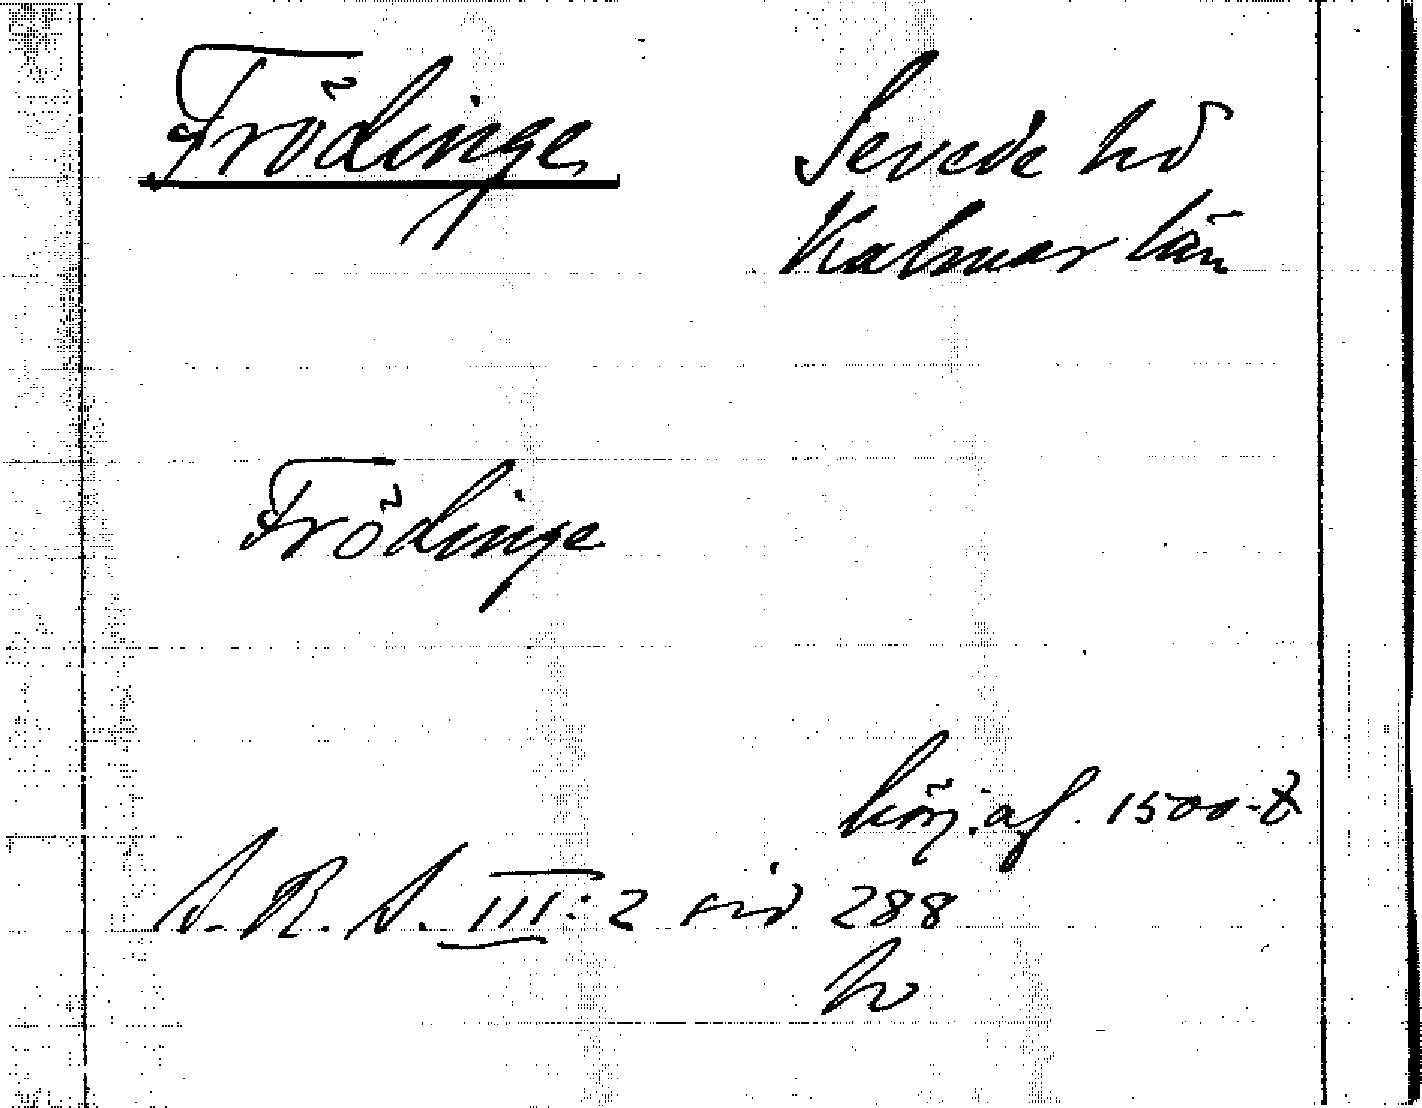 Frödinge
Sevede hd
Kalmar län
Frödinge
börj. af 1500-t
S. R. S. III: 2 sid 288